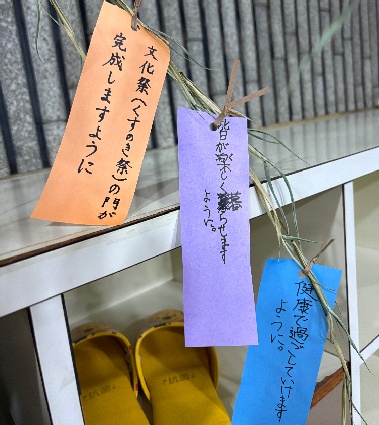 文化祭(くすのき祭)の門が
完成しますように
皆が楽しく暮らせます
ように。
健康で過ごしていけます
ように。